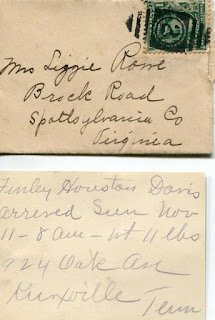 Mrs Lizzie Rowe
Brock Road
Spottsylvania Co
Virginia
Finley Houston Davis
arrived Sun Nov
11 - 8 am - wt 11 lbs
924 Oak Av
Knoxville
Tenn